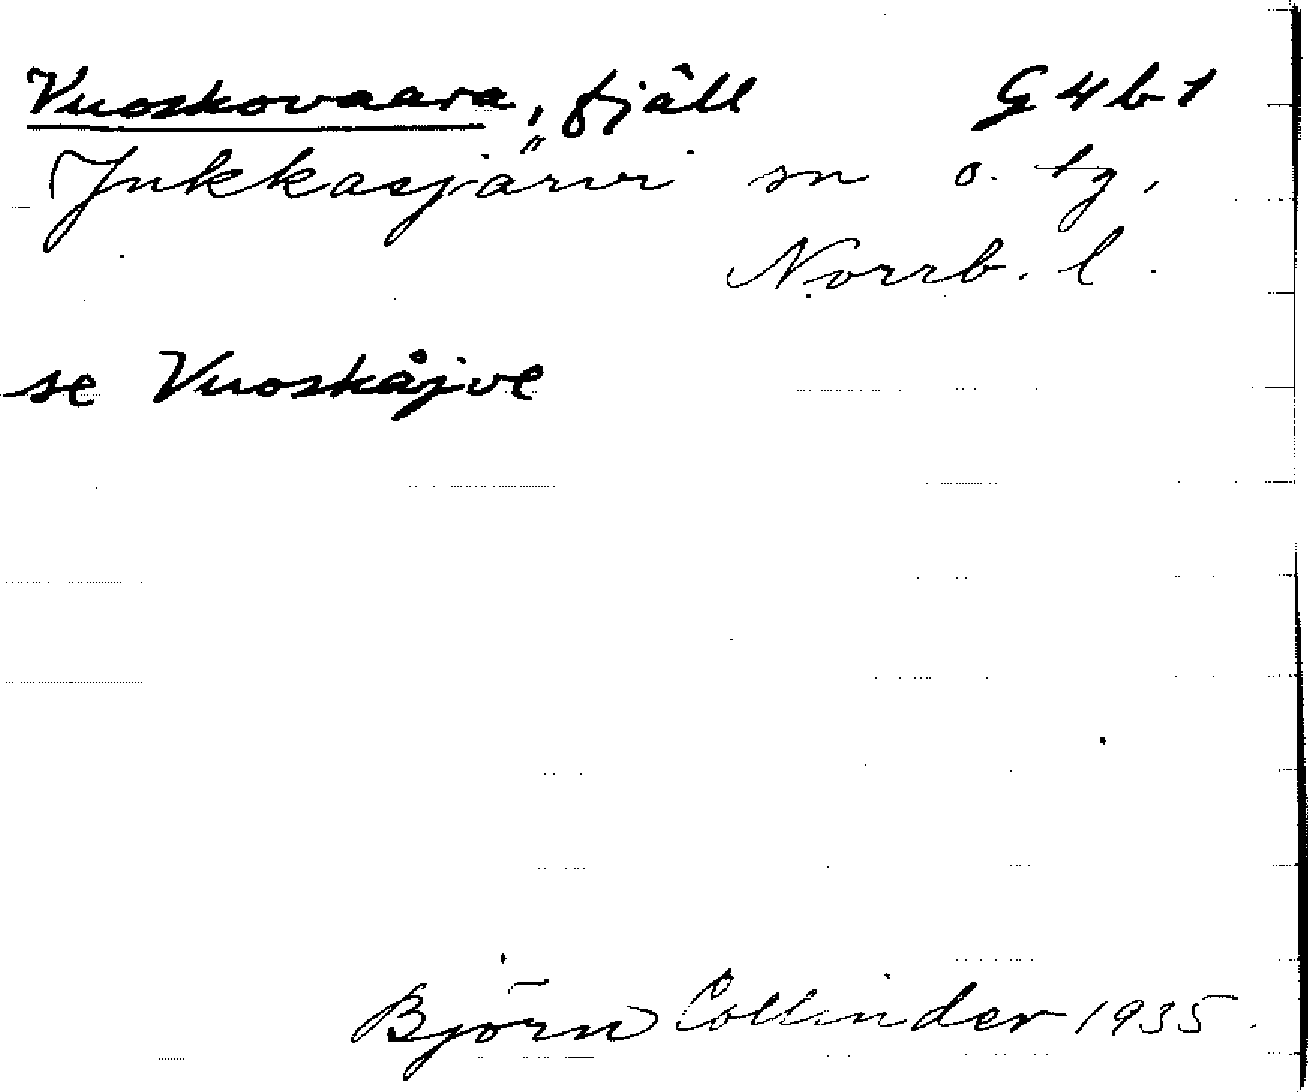 Vuoskovaara, fjäll G4b1
Jukkasjärvi sn o. tg,
Norrb. l.
se Vuoskåjve
Björn Collinder 1935.